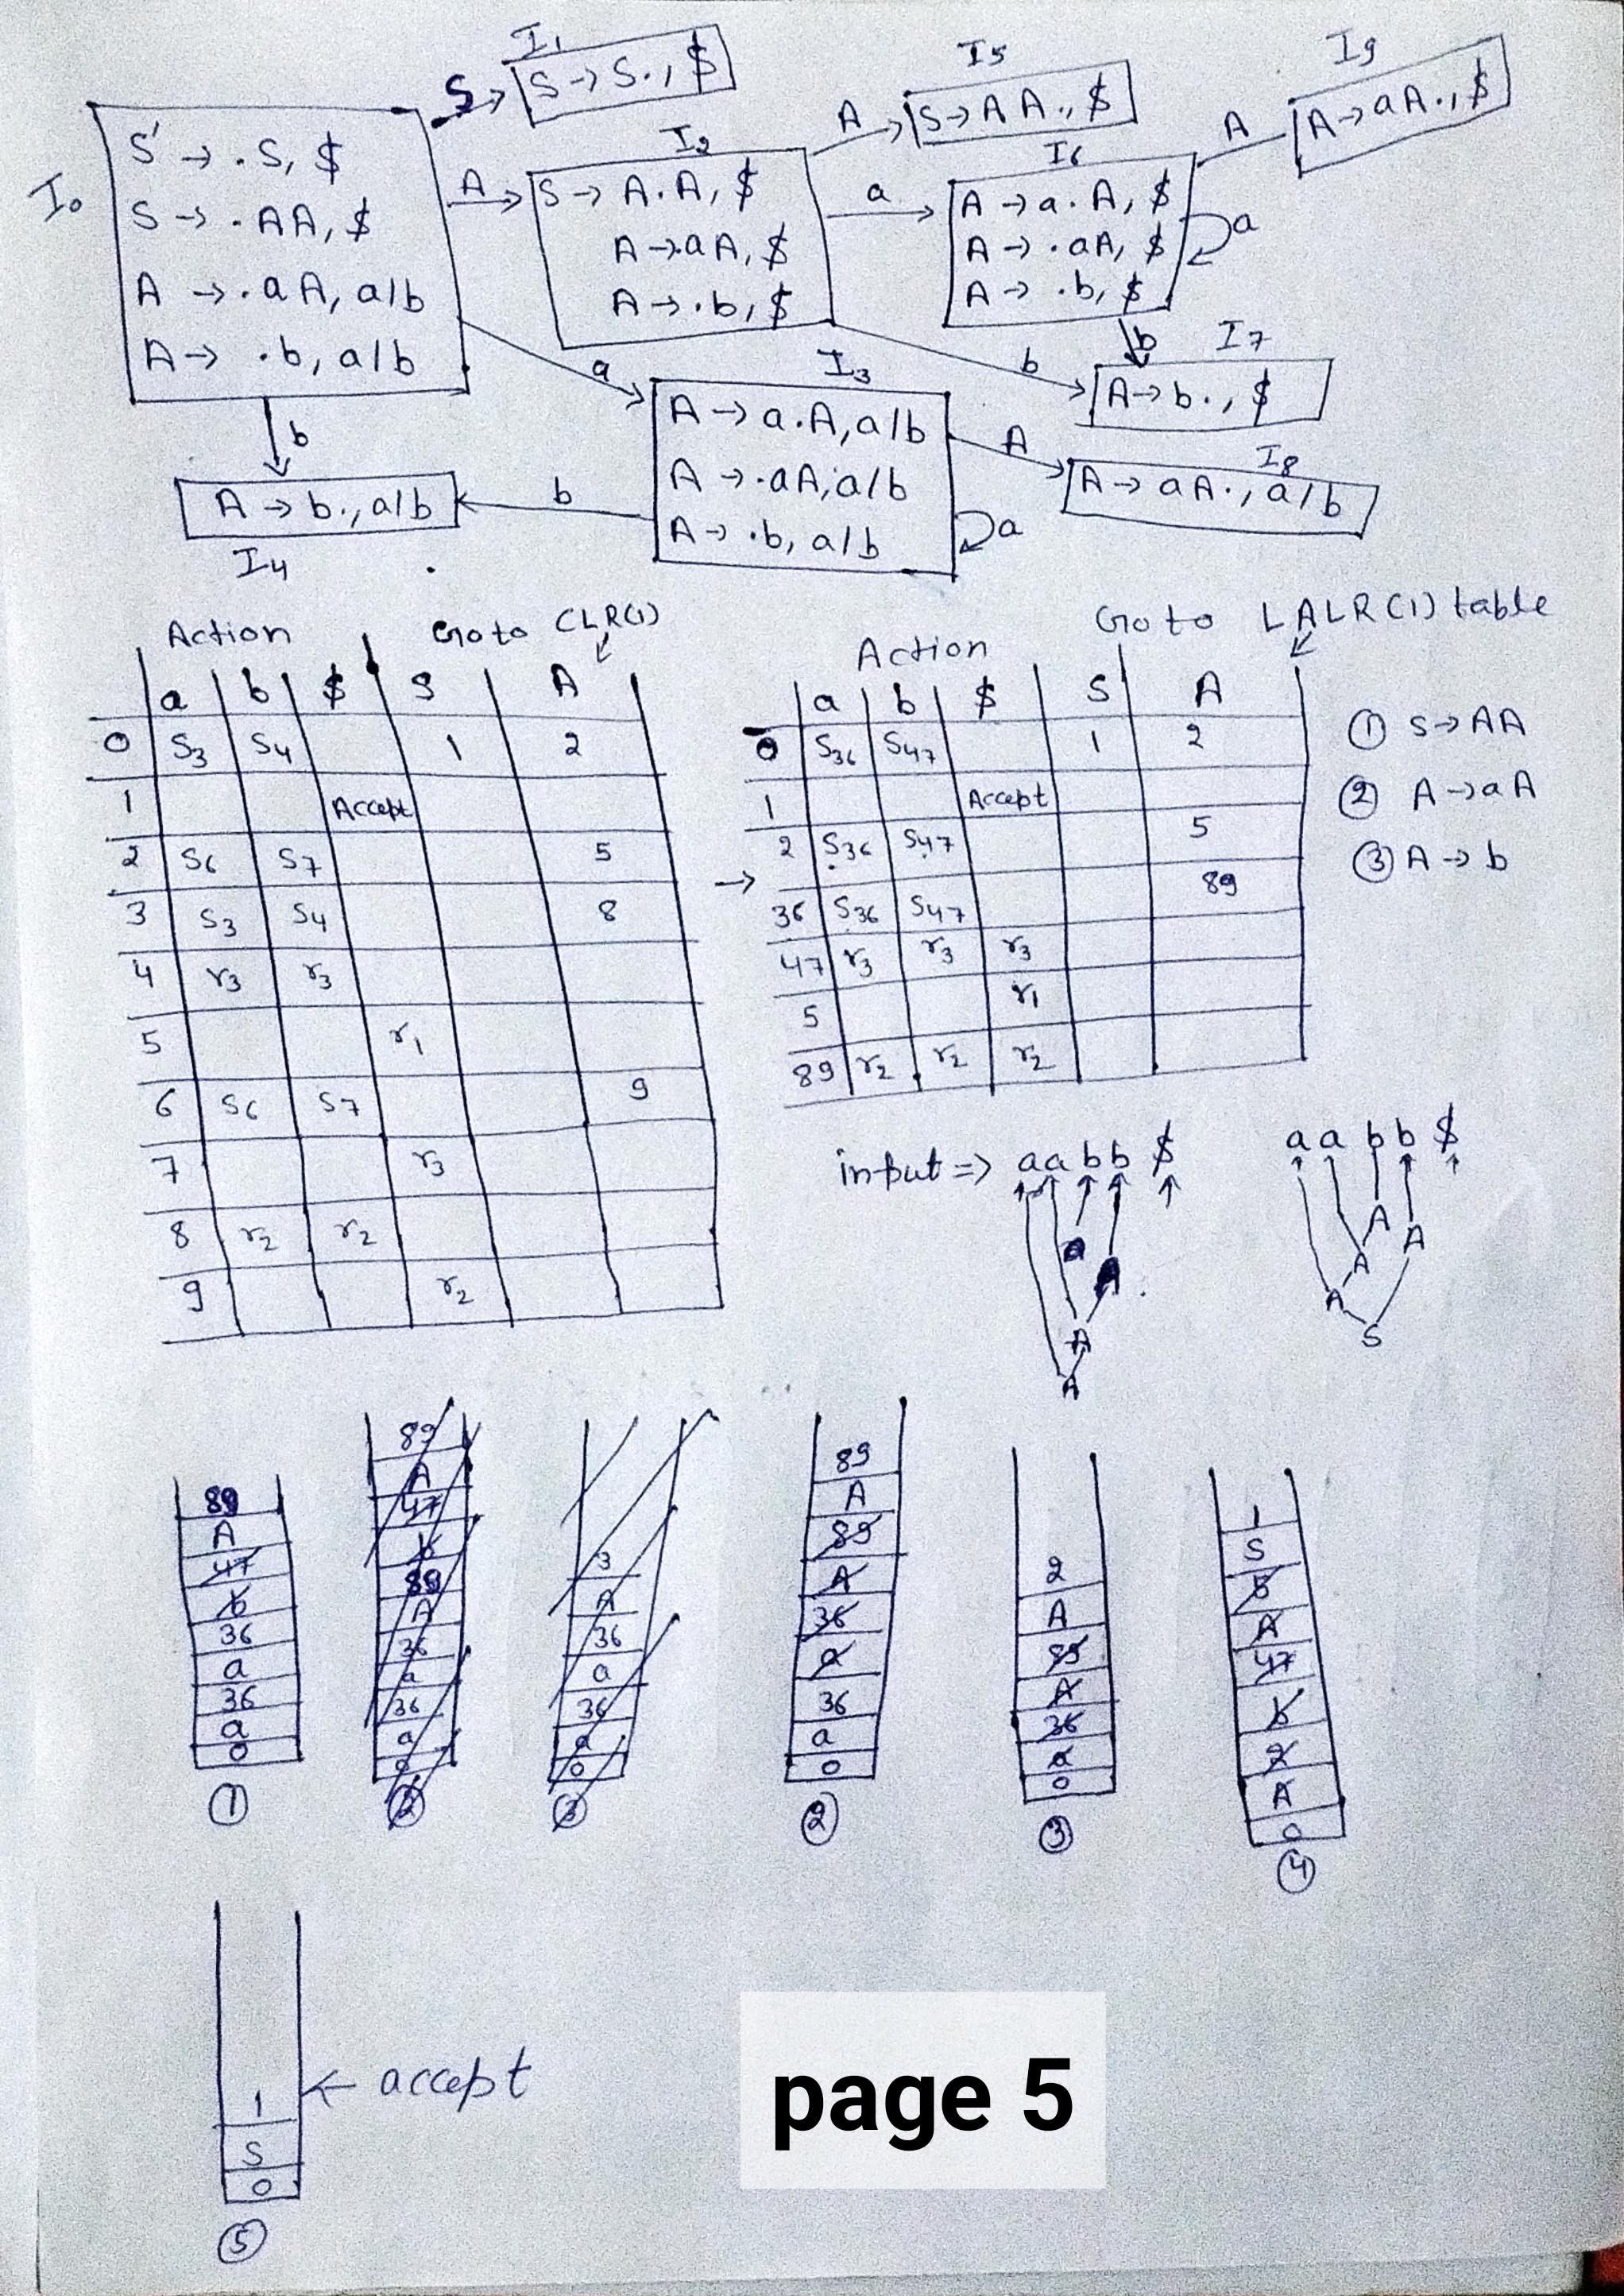 I1
S → S., $
S
I0
S' → .S, $
S → .AA, $
A → .aA, a/b
A → .b, a/b
A
I2
S → A.A, $
A → .aA, $
A → .b, $
A
I5
S → AA., $
a
I6
A → a.A, $
A → .aA, $
A → .b, $
a
A
I9
A → aA., $
b
I7
A → b., $
b
a
I3
A → a.A, a/b
A → .aA, a/b
A → .b, a/b
a
A
I8
A → aA., a/b
b
b
A → b., a/b
I4
Action Goto CLR(1)
a b $ S A
0 S3 S4 1 2
1 Accept
2 S6 S7 5
3 S3 S4 8
4 r3 r3
5 r1
6 S6 S7 9
7 r3
8 r2 r2
9 r2
Action Goto LALR(1) table
a b $ S A
0 S36 S47 1 2
1 Accept
2 S36 S47 5
36 S36 S47 89
47 r3 r3 r3
5 r1
89 r2 r2 r2
① S → AA
② A → aA
③ A → b
input => aabb $
A
A
a a b b $
A
A
A
A
S
89
A
47
b
36
a
36
a
0
①
89
A
47
b
89
A
36
a
36
a
0
②
3
A
36
a
36
a
0
③
89
A
89
A
36
a
36
a
0
②
2
A
89
A
36
a
0
③
1
S
5
A
47
b
2
A
0
④
1
S
0
⑤
← accept
page 5